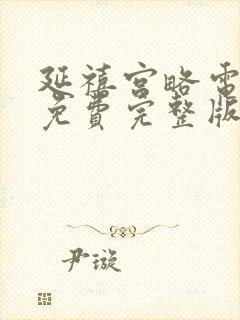 延禧宫略电
免费完整版
尹璇